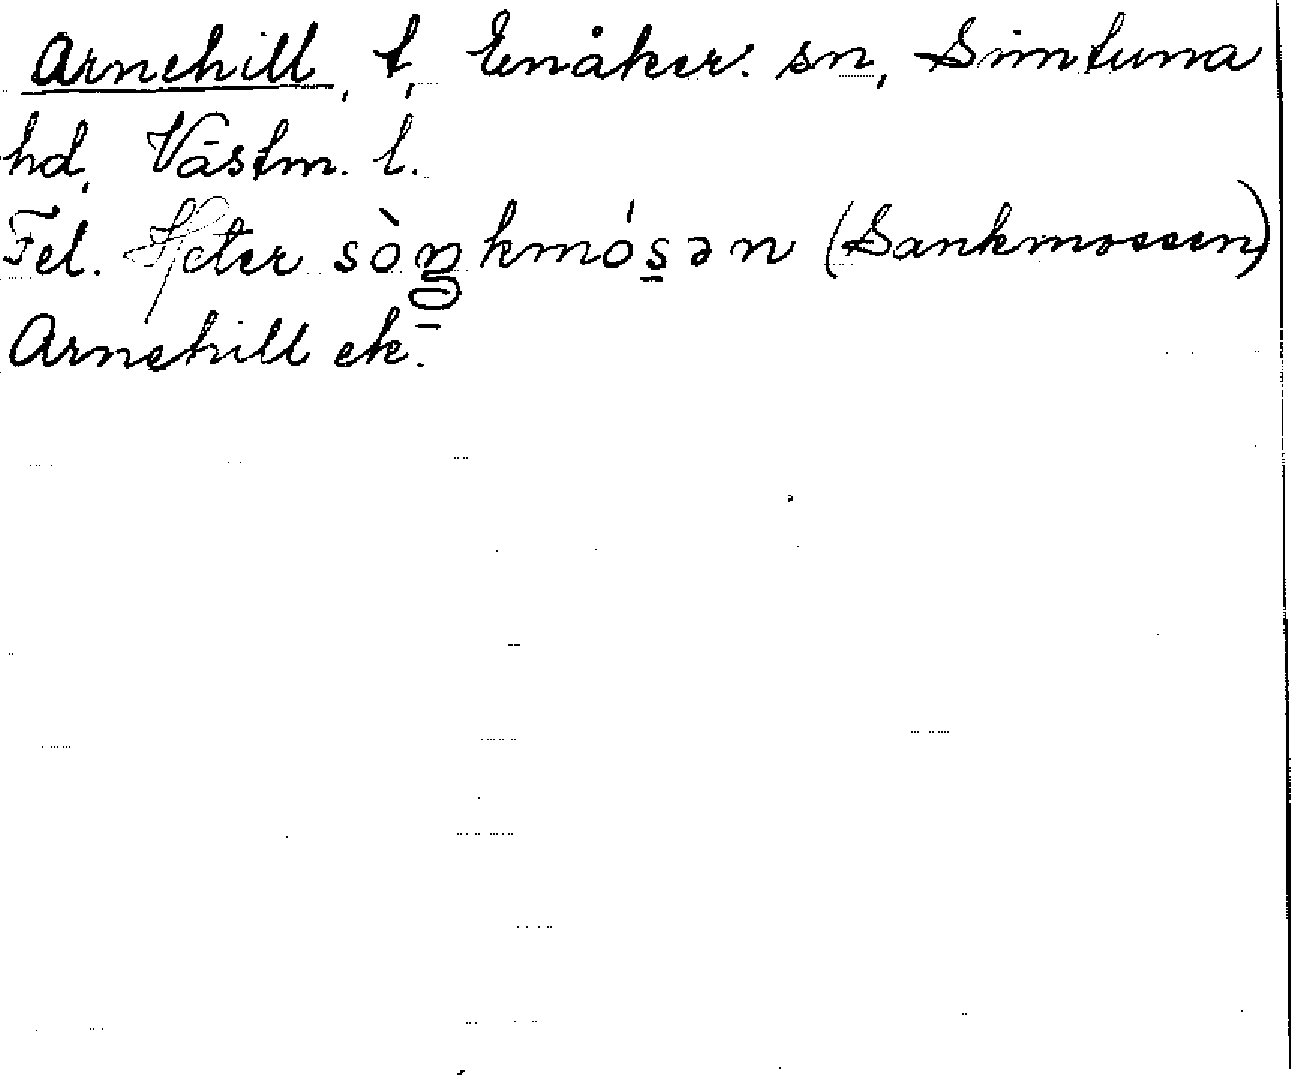 Arnehill, t, Enåker. sn, Simtuna
hd, Västm. l.
Fel. Heter sòŋkmósən (Sankmossen)
Arnehill ek.